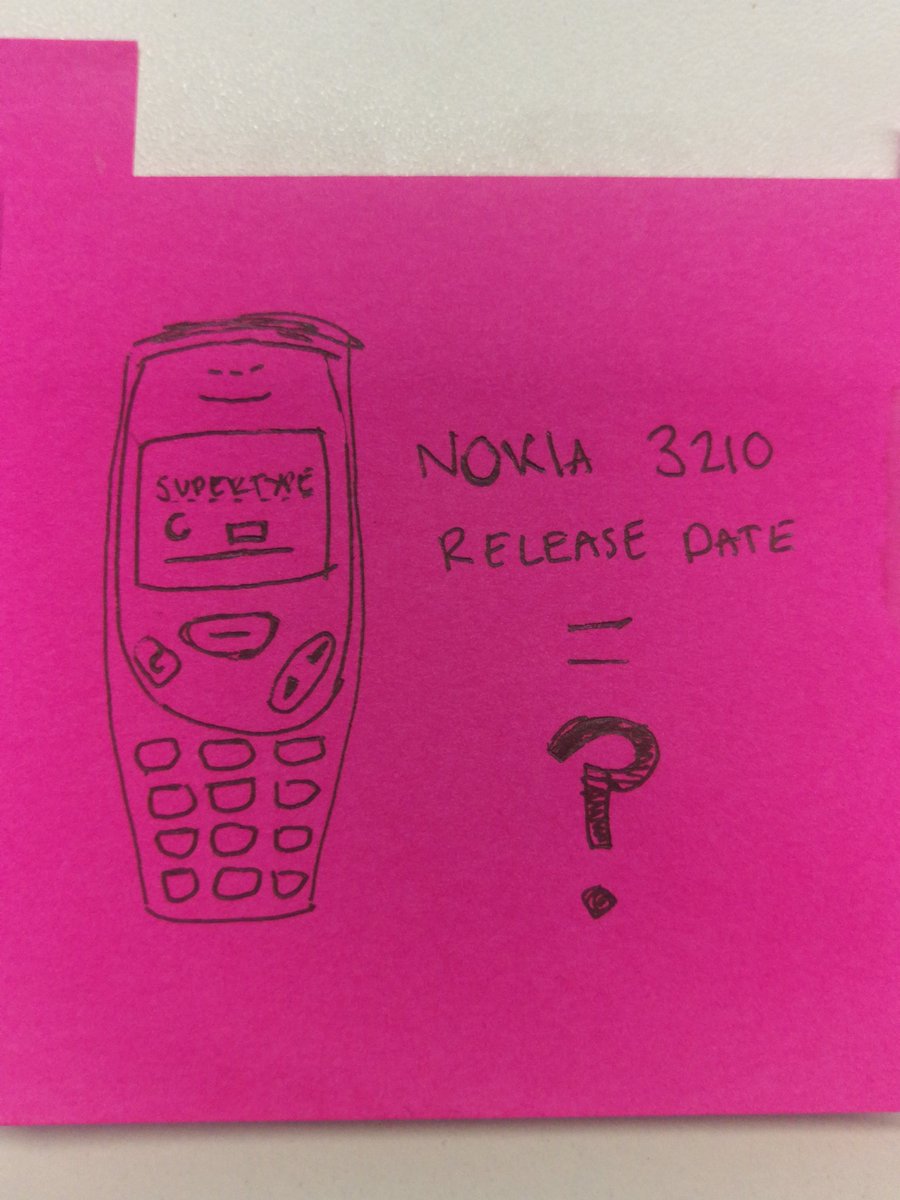 SUPERTYPE
C
NOKIA 3210
RELEASE DATE
=
?